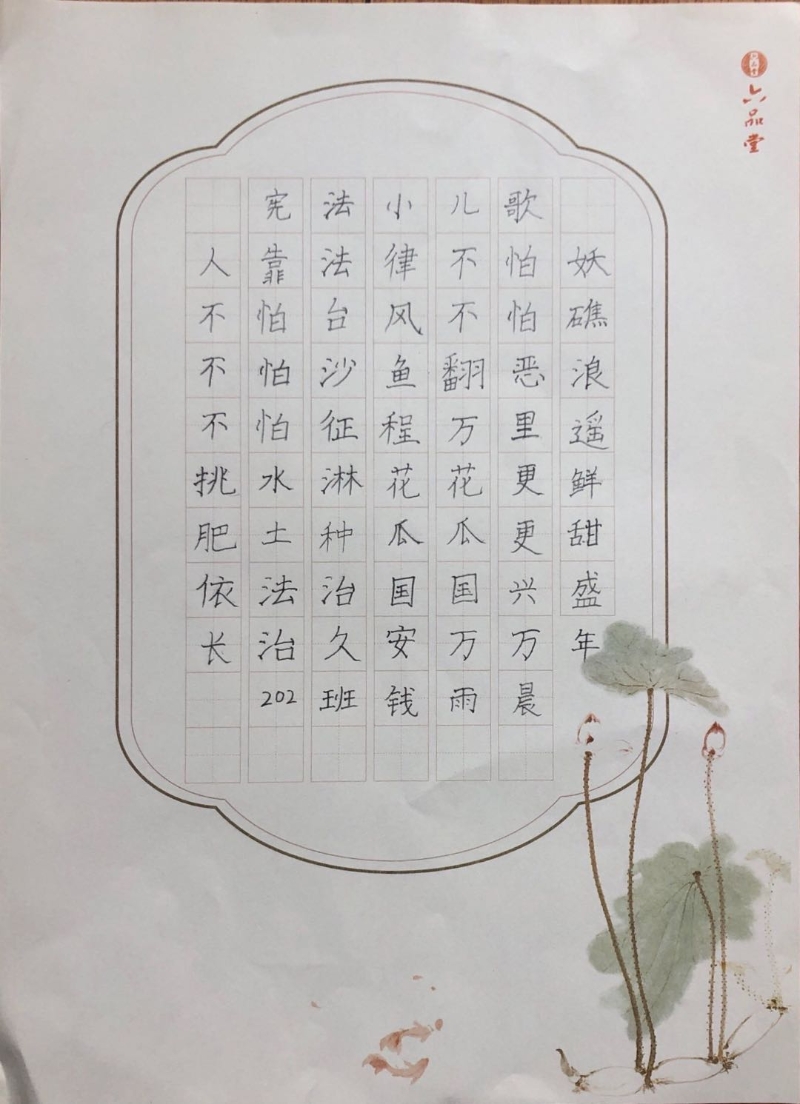 六品堂
宪法小儿歌
人靠法律不怕妖
不怕台风不怕礁
不怕沙鱼翻恶浪
不怕征程万里遥
挑水淋花花更鲜
肥土种瓜瓜更甜
依法治国国兴盛
长治久安万万年
202班钱雨晨